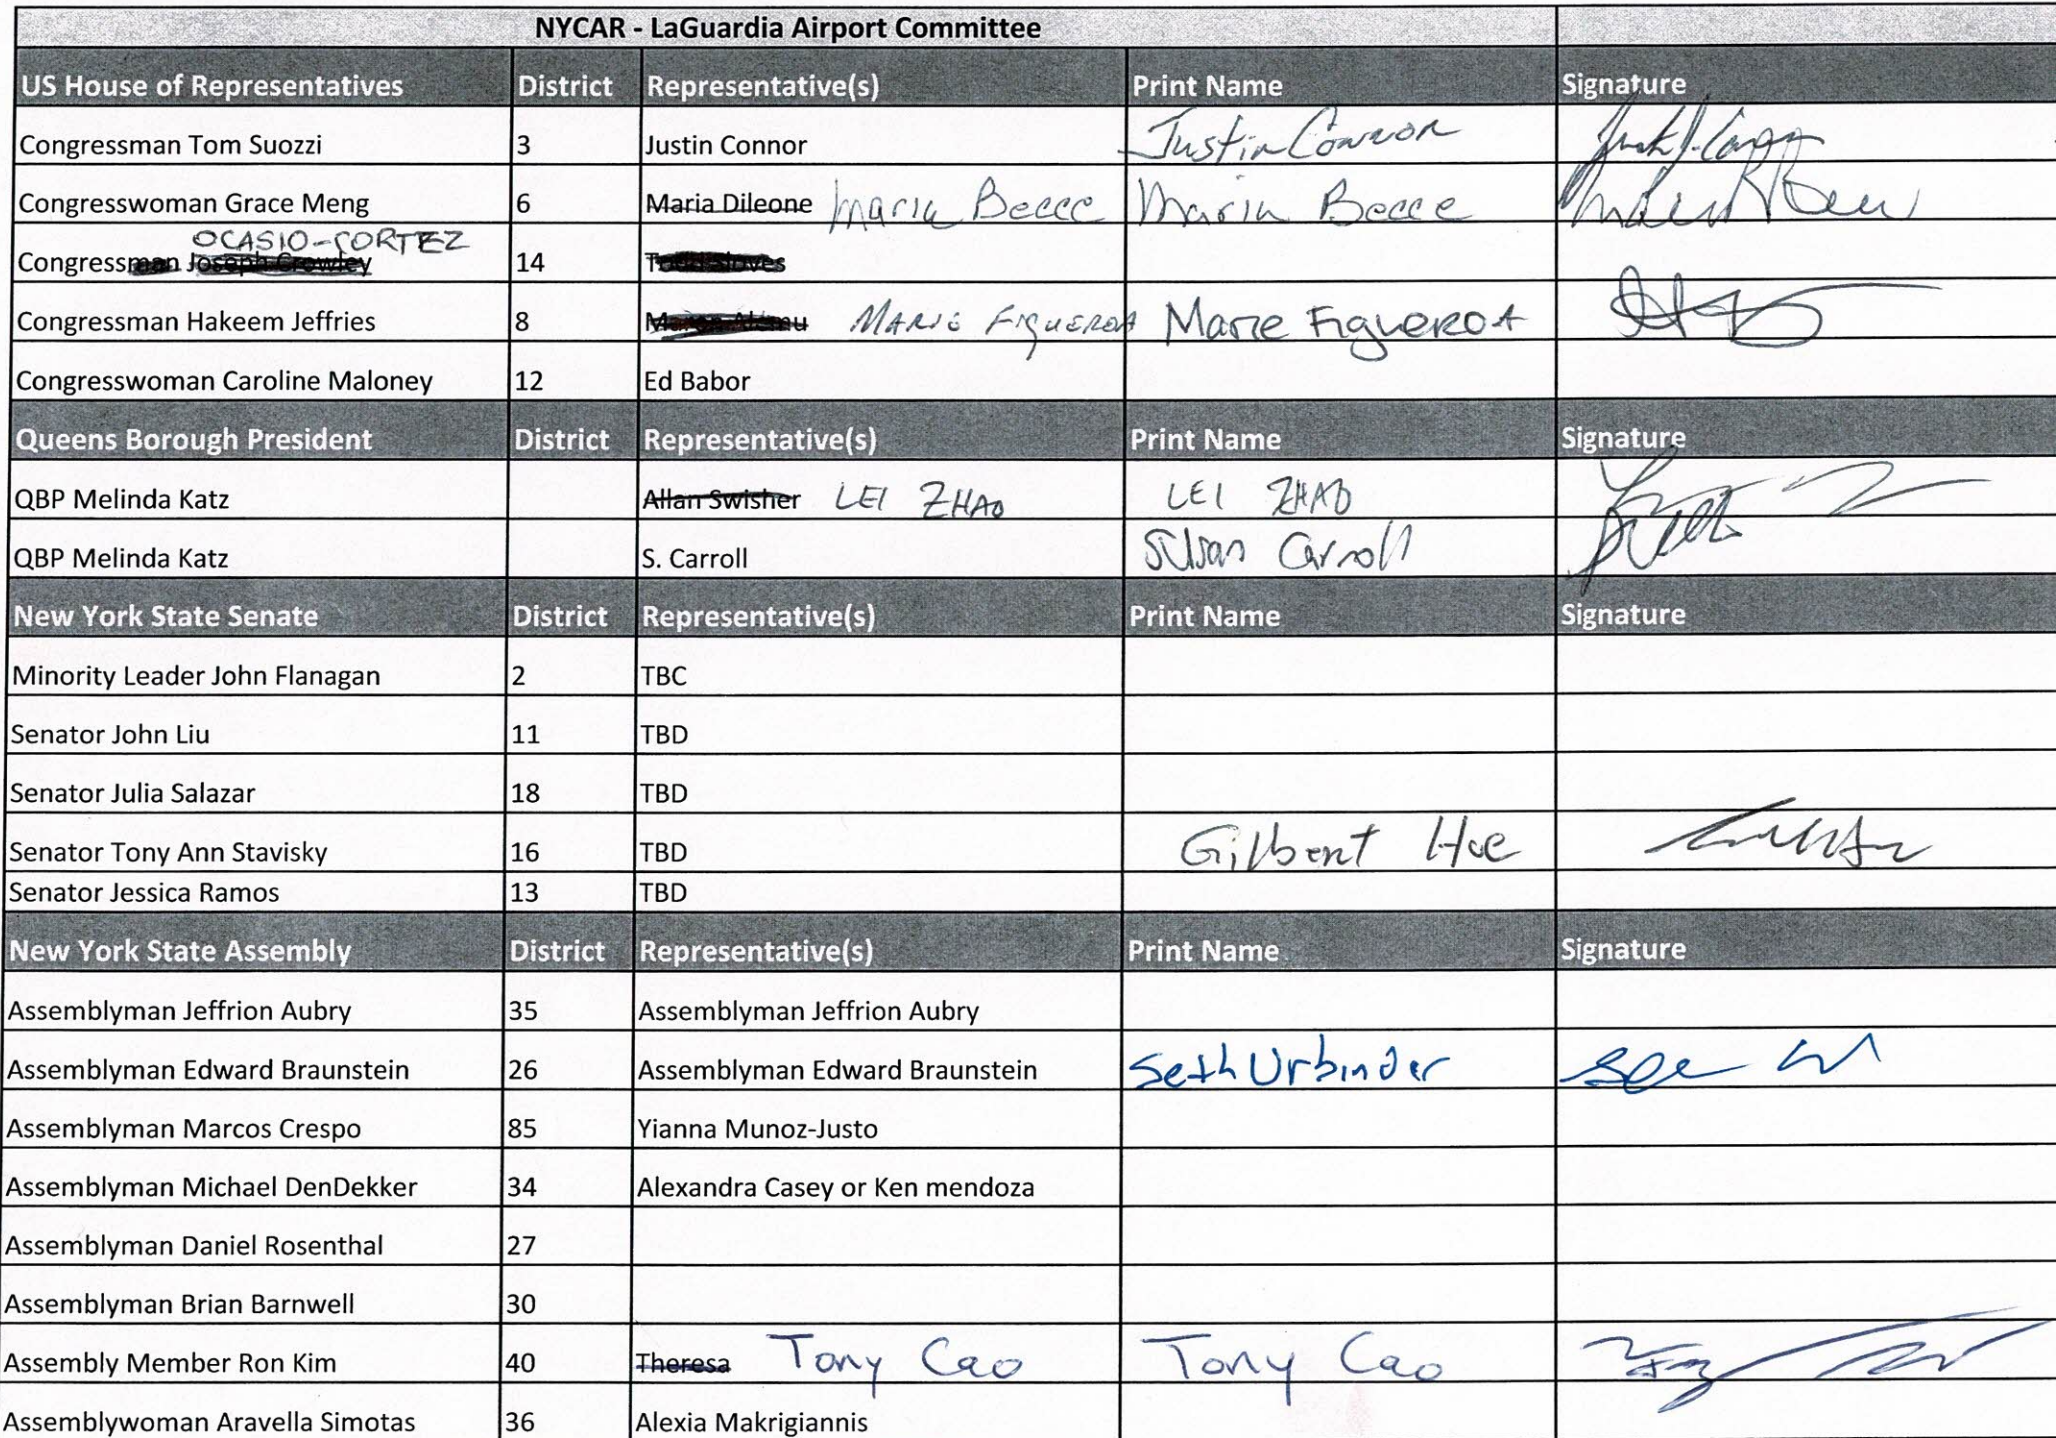 NYCAR - LaGuardia Airport Committee
US House of Representatives District Representative(s) Print Name Signature
Congressman Tom Suozzi 3 Justin Connor Justin Connor
Congresswoman Grace Meng 6 Maria Dileone Maria Becce Maria Becce
OCASIO-CORTEZ
Congressman Joseph Crowley 14
Congressman Hakeem Jeffries 8 MARIE FIGUEROA Marie FigueROA
Congresswoman Caroline Maloney 12 Ed Babor
Queens Borough President District Representative(s) Print Name Signature
QBP Melinda Katz Allan Swisher LEI ZHAO LEI ZHAO
QBP Melinda Katz S. Carroll Susan Carroll
New York State Senate District Representative(s) Print Name Signature
Minority Leader John Flanagan 2 TBC
Senator John Liu 11 TBD
Senator Julia Salazar 18 TBD
Senator Tony Ann Stavisky 16 TBD Gilbert
Senator Jessica Ramos 13 TBD
New York State Assembly District Representative(s) Print Name Signature
Assemblyman Jeffrion Aubry 35 Assemblyman Jeffrion Aubry
Assemblyman Edward Braunstein 26 Assemblyman Edward Braunstein Seth Urbinder
Assemblyman Marcos Crespo 85 Yianna Munoz-Justo
Assemblyman Michael DenDekker 34 Alexandra Casey or Ken mendoza
Assemblyman Daniel Rosenthal 27
Assemblyman Brian Barnwell 30
Assembly Member Ron Kim 40 Theresa Tony Cao Tony Cao
Assemblywoman Aravella Simotas 36 Alexia Makrigiannis